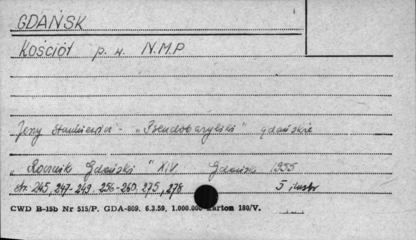 GDAŃSK
Kościół p. w. N.M.P
Jerzy Stankiewicz - "Pseudobazyliki" gdańskie
"Rocznik Gdański" XIV. Gdańsk 1955
str. 245, 247-249, 256-260, 275, 278 5 ilustr
CWD B-15b Nr 515/P. GDA-809. 6.3.59. 1.000.000 karton 180/V.